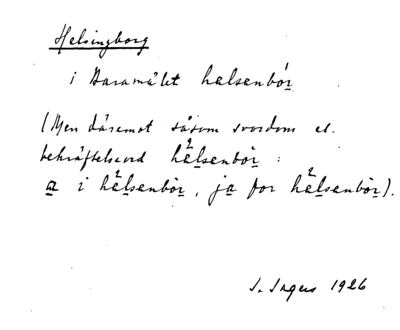 Helsingborg
i Daramålet halsenbór
(Men däremot såsom svordom el.
bekräftelseord hälsenbör :
a i hälsenbör, ja for hälsenbör).
J. Ingers 1926